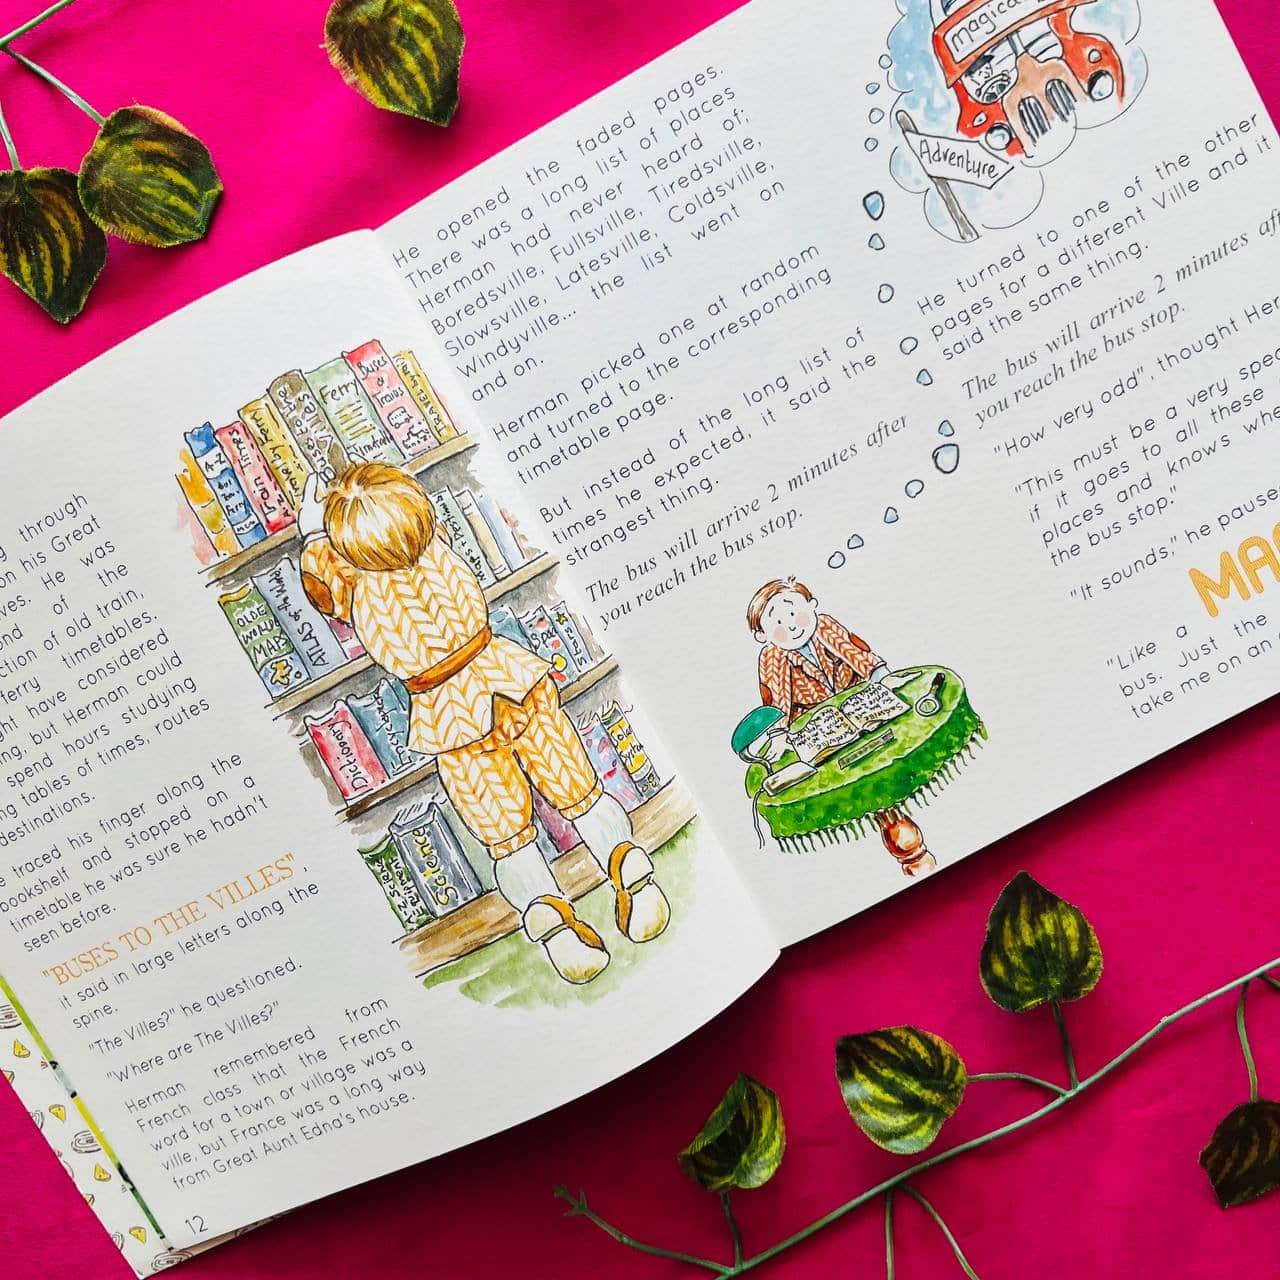 through
on his Great
He was
of the
ction of old train,
ferry timetables.
ght have considered
but Herman could
spend hours studying
tables of times, routes
destinations.
traced his finger along the
bookshelf and stopped on a
timetable he was sure he hadn't
seen before.
"BUSES TO THE VILLES",
it said in large letters along the
spine.
"The Villes?" he questioned.
"Where are The Villes?"
Herman remembered from
French class that the French
word for a town or village was a
ville, but France was a long way
from Great Aunt Edna's house.
12
A-Z
Train Times
Ferry
Buses & Trains
OLDE WORLDE MAPS
ATLAS of the World
Maps +
Dictionary
Science
Solar System
He opened the faded pages.
There was a long list of places
Herman had never heard of;
Boredsville, Fullsville, Tiredsville,
Slowsville, Latesville, Coldsville,
Windyville... the list went on
and on.
Herman picked one at random
and turned to the corresponding
timetable page.
But instead of the long list of
times he expected, it said the
strangest thing.
The bus will arrive 2 minutes after
you reach the bus stop.
magical
Adventure
He turned to one of the other
pages for a different Ville and it
said the same thing.
The bus will arrive 2 minutes
you reach the bus stop.
"How very odd", thought
"This must be a very
if it goes to all these
places and knows
the bus stop."
"It sounds," he
"Like a
bus. Just the
take me on an